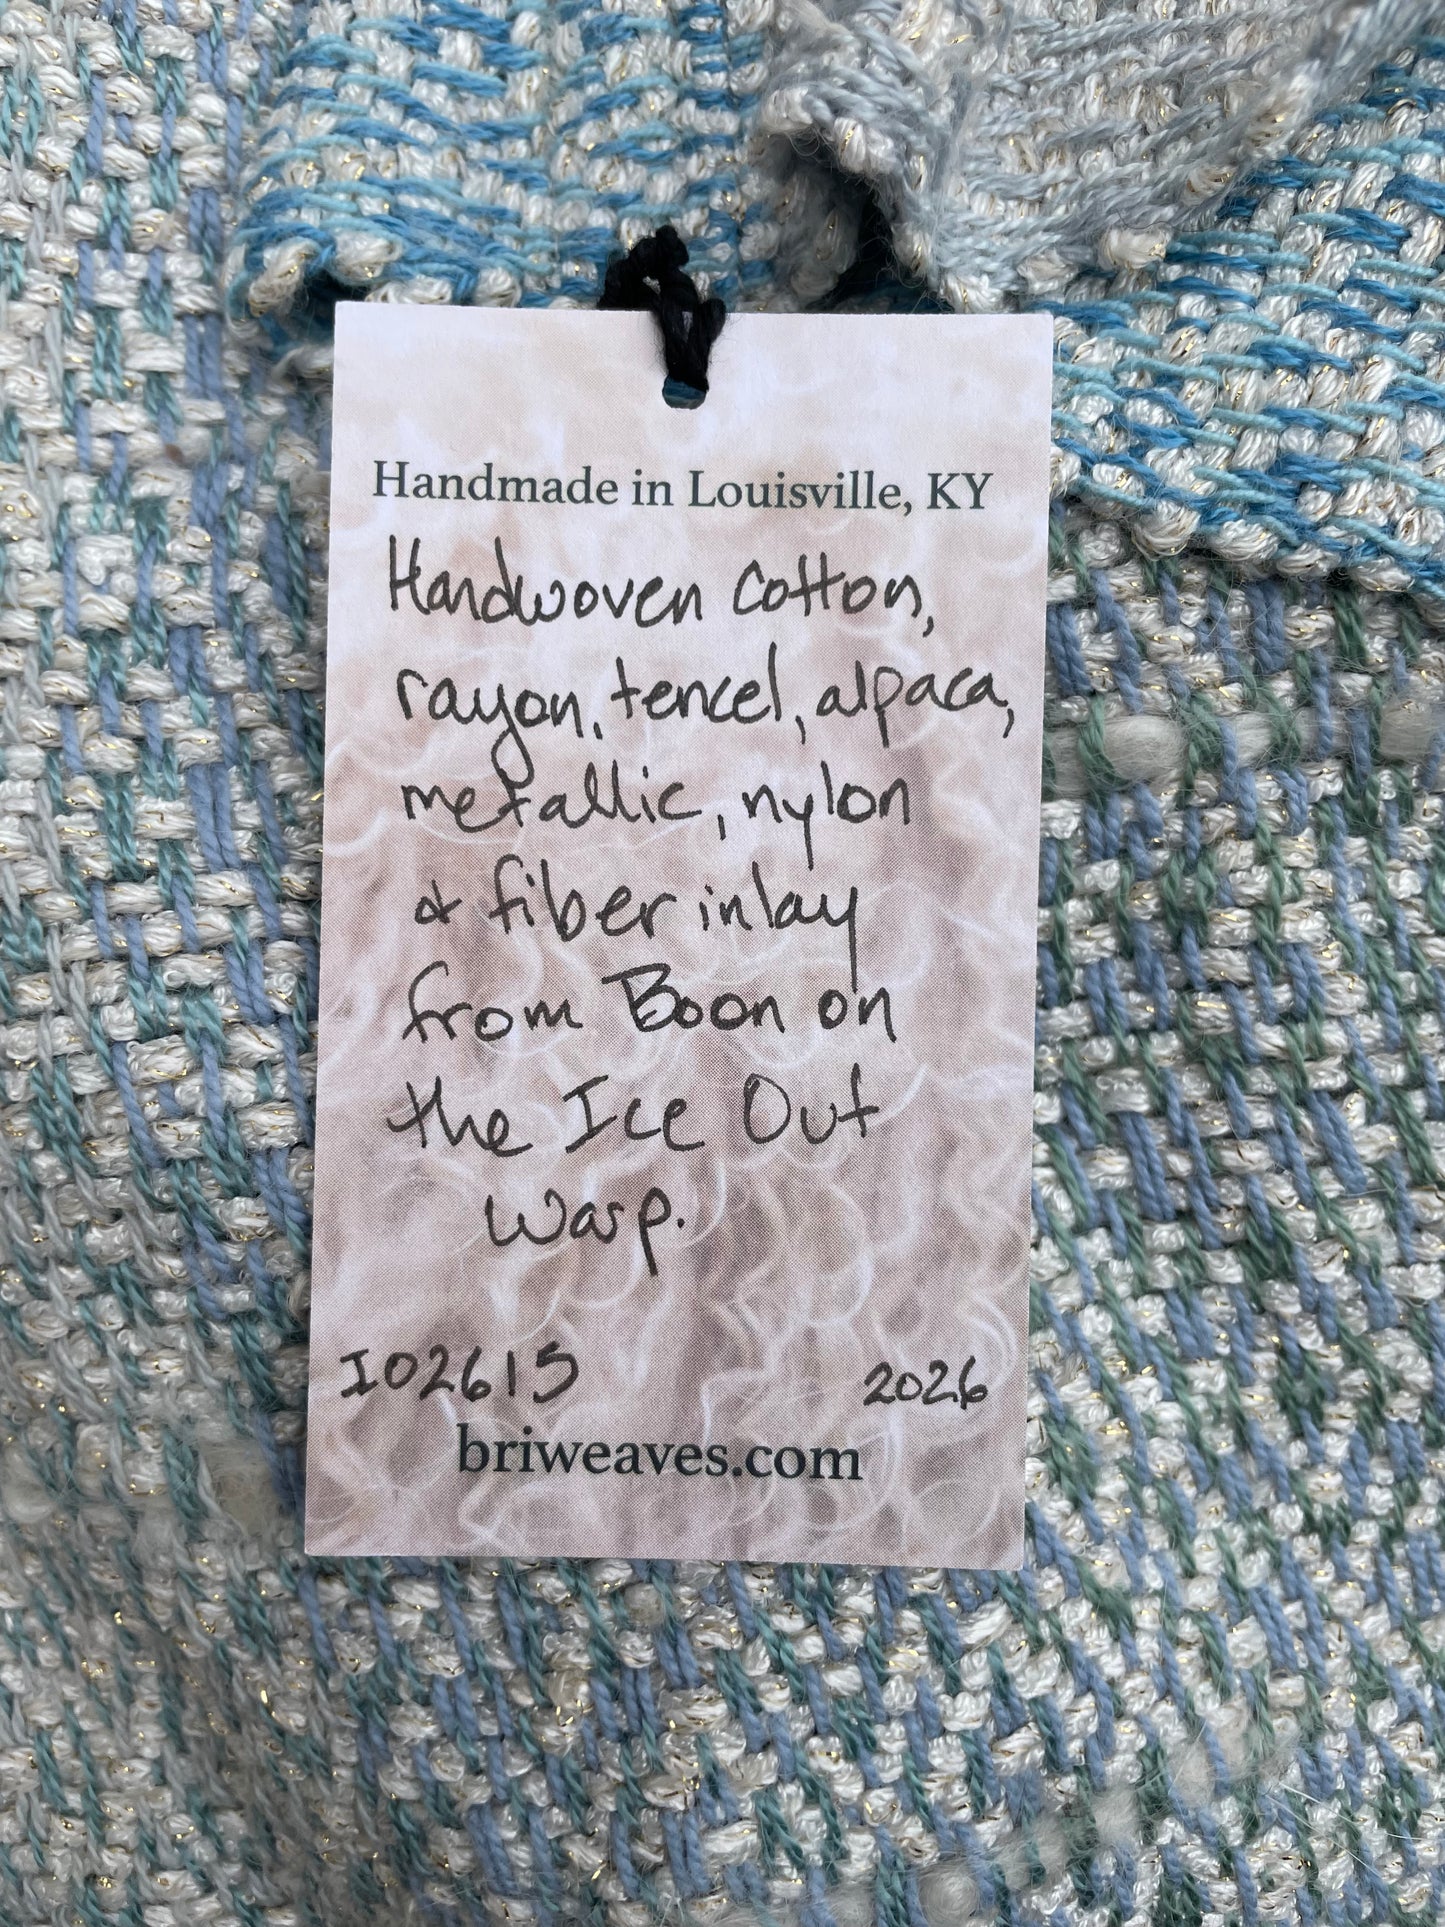 Handmade in Louisville, KY
Handwoven cotton,
rayon, tencel, alpaca,
metallic, nylon
& fiber inlay
from Boon on
the Ice Out
warp.
I02615 2026
briweaves.com